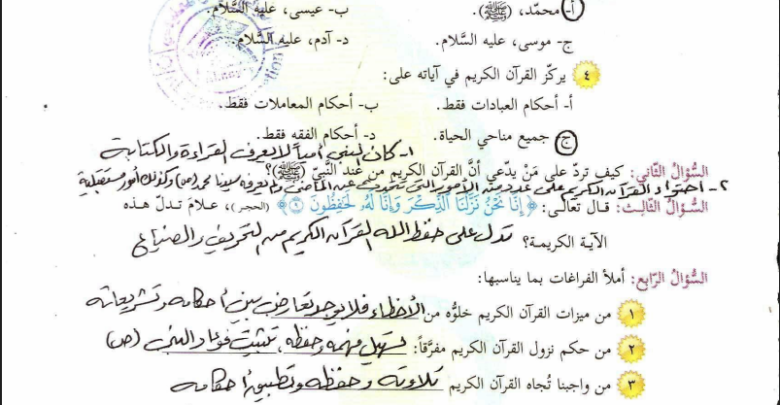 أ- محمّد، (ﷺ). ب- عيسى، عليه السَّلام.
ج- موسى، عليه السَّلام. د- آدم، عليه السَّلام.
٤ يركّز القرآن الكريم في آياته على:
أ- أحكام العبادات فقط. ب- أحكام المعاملات فقط.
ج- جميع مناحي الحياة. د- أحكام الفقه فقط.
١- كان النبي أمياً لا يعرف القراءة والكتابة
السُّؤال الثّاني: كيف تردّ على مَنْ يدّعي أنَّ القرآن الكريم من عند النَّبيّ (ﷺ)؟
٢- احتواء القرآن الكريم على عدد من الأمور التي تتحدث عن الماضي ولم يعرفه سيدنا محمد (ص) وكذلك أمور مستقبلية
السُّؤال الثّالث: قال تعالى: ﴿إِنَّا نَحْنُ نَزَّلْنَا ٱلذِّكْرَ وَإِنَّا لَهُۥ لَحَٰفِظُونَ ٩﴾ (الحجر)، علامَ تدلّ هذه
الآية الكريمة؟ تدل على حفظ الله القرآن الكريم من التحريف والضياع
السُّؤال الرّابع: أملأ الفراغات بما يناسبها:
١ من ميزات القرآن الكريم خلوُّه من الأخطاء فلا يوجد تعارض بين أحكامه وتشريعاته
٢ من حكم نزول القرآن الكريم مفرَّقاً: تسهيل فهمه وحفظه، تثبيت فؤاد النبي (ص)
٣ من واجبنا تُجاه القرآن الكريم تلاوته وحفظه وتطبيق أحكامه